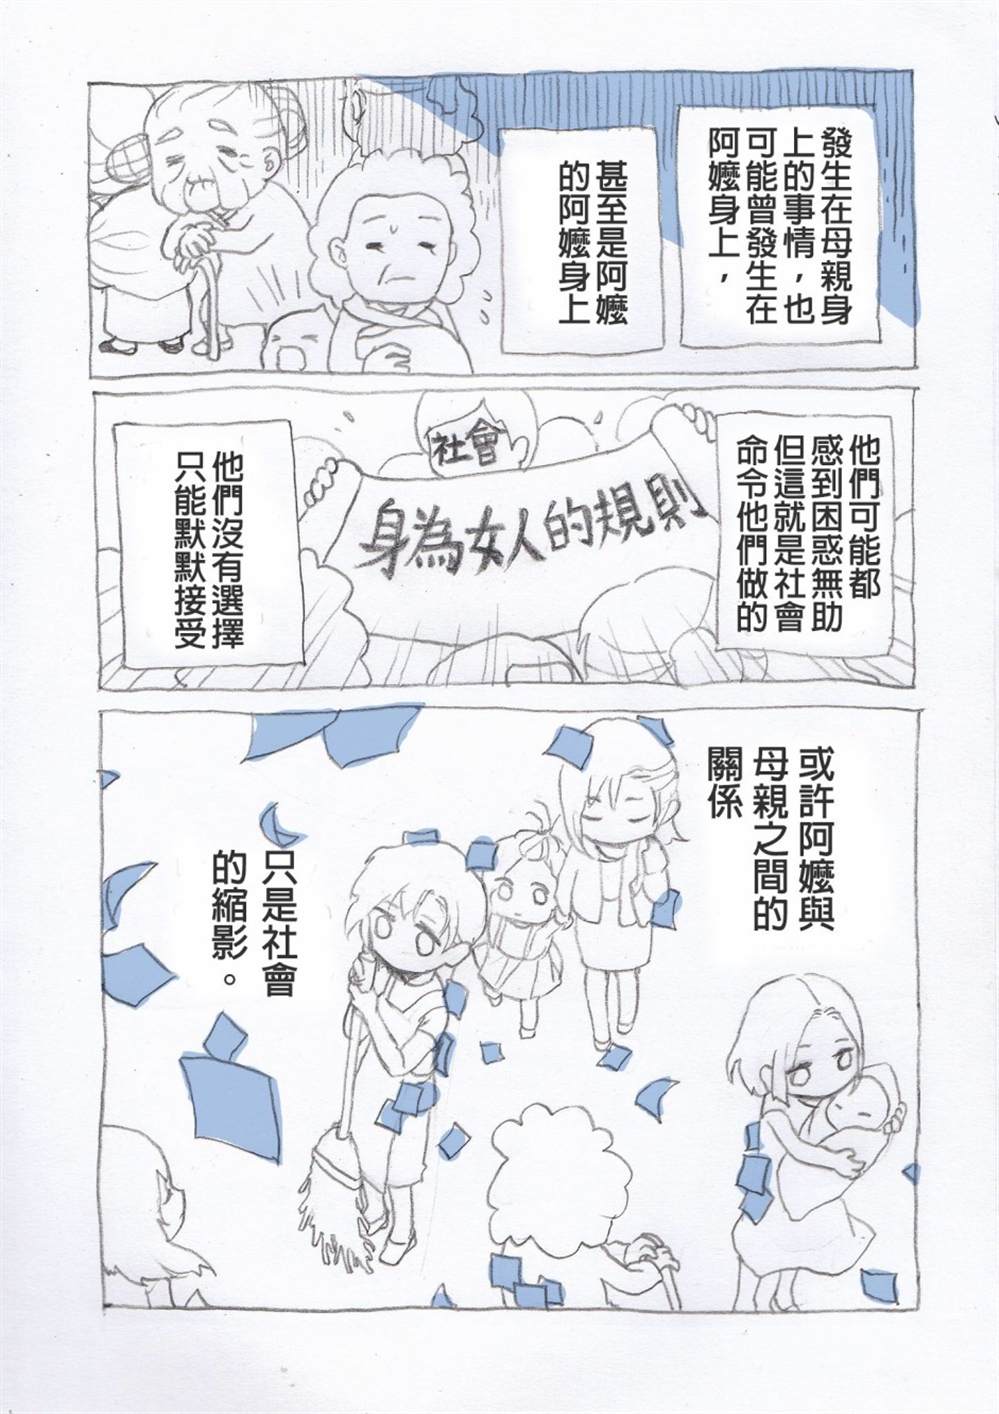 發生在母親身
上的事情，也
可能曾發生在
阿嬤身上，
甚至是阿嬤
的阿嬤身上
他們可能都
感到困惑無助
但這就是社會
命令他們做的
社會
身為女人的規則
他們沒有選擇
只能默默接受
或許阿嬤與
母親之間的
關係
只是社會
的縮影。